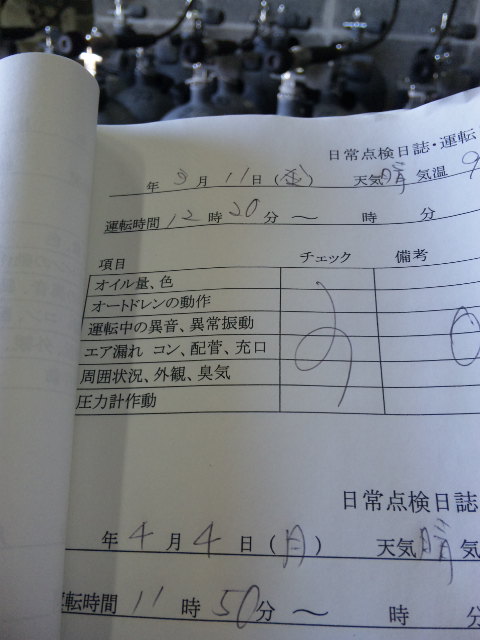 日常点検日誌・運転
年 3月 11日 (金) 天気 晴 気温 9
運転時間 12時 20分 〜 時 分
項目 チェック 備考
オイル量、色
オートドレンの動作
運転中の異音、異常振動
エア漏れ コン、配管、充口
周囲状況、外観、臭気
圧力計作動
日常点検日誌
年 4月 4日 (月) 天気 晴 気
運転時間 11時 50分 〜 時 分